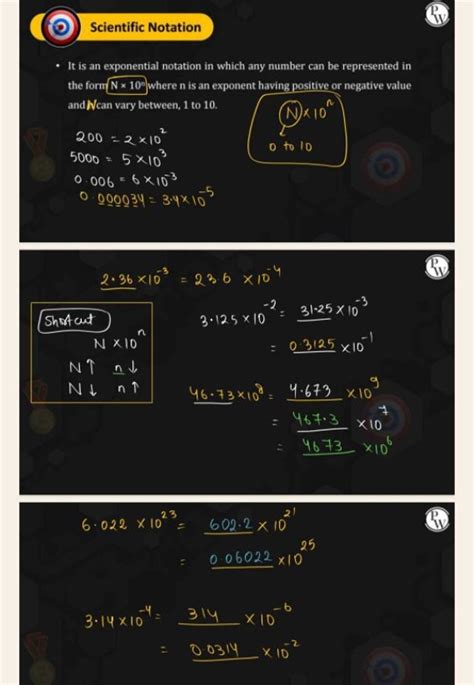 Scientific Notation
PW
• It is an exponential notation in which any number can be represented in
the form N × 10ⁿ where n is an exponent having positive or negative value
and N can vary between, 1 to 10.
N × 10ⁿ
0 to 10
200 = 2 × 10²
5000 = 5 × 10³
0.006 = 6 × 10⁻³
0.000034 = 3.4 × 10⁻⁵
PW
2.36 × 10⁻³ = 23.6 × 10⁻⁴
Shortcut
N × 10ⁿ
N↑ n↓
N↓ n↑
3.125 × 10⁻² = 31.25 × 10⁻³
= 0.3125 × 10⁻¹
46.73 × 10⁸ = 4.673 × 10⁹
= 467.3 × 10⁷
= 4673 × 10⁶
PW
6.022 × 10²³ = 602.2 × 10²¹
= 0.06022 × 10²⁵
3.14 × 10⁻⁴ = 314 × 10⁻⁶
= 0.0314 × 10⁻²